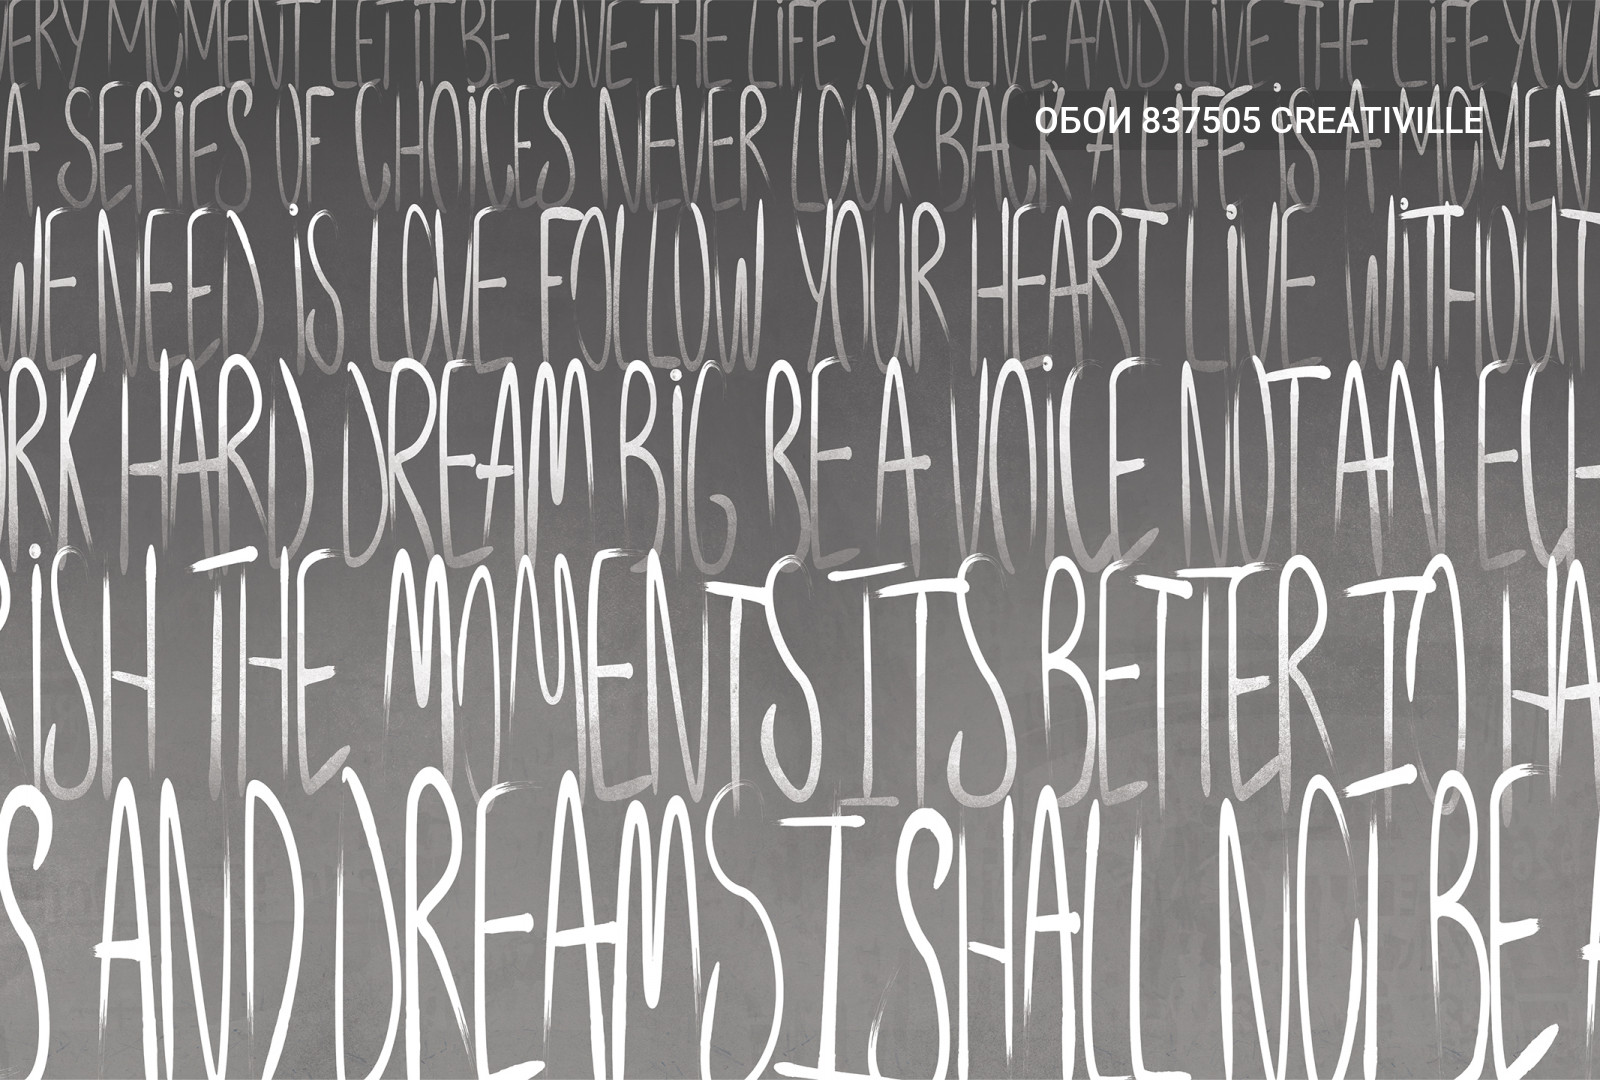 VERY MOMENT LET IT BE LOVE THE LiFE YOU LiVE AND LiVE THE LiFE YOU
A SERiES OF CHOiCES NEVER LOOK BACK A LiFE iS A MOMENT
ОБОИ 837505 CREATIVILLE
WE NEED iS LOVE FOLLOW YOUR HEART LiVE WiTHOUT
ORK HARD DREAM BiG BE A VOiCE NOT AN ECH
RiSH THE MOMENTS ITS BETTER TO HA
S AND DREAMS I SHALL NOT BE A